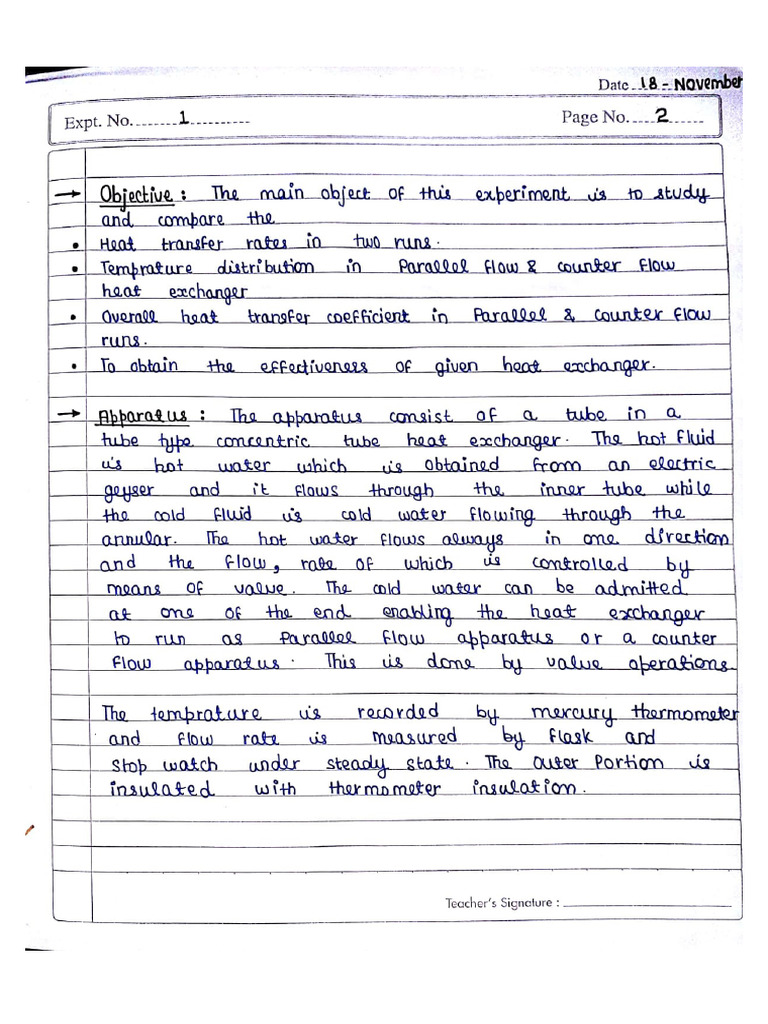 Date 18 - November
Expt. No. 1
Page No. 2
→ Objective : The main object of this experiment is to study
and compare the
• Heat transfer rates in two runs.
• Temprature distribution in Parallel flow & counter flow
heat exchanger
• Overall heat transfer coefficient in Parallel & counter flow
runs.
• To obtain the effectiveness of given heat exchanger.
→ Apparatus : The apparatus consist of a tube in a
tube type concentric tube heat exchanger. The hot fluid
is hot water which is obtained from an electric
geyser and it flows through the inner tube while
the cold fluid is cold water flowing through the
annular. The hot water flows always in one direction
and the flow, rate of which is controlled by
means of value. The cold water can be admitted
at one of the end enabling the heat exchanger
to run as Parallel flow apparatus or a counter
flow apparatus. This is done by value operations.
The temprature is recorded by mercury thermometer
and flow rate is measured by flask and
stop watch under steady state. The Outer Portion is
insulated with thermometer insulation.
Teacher's Signature :